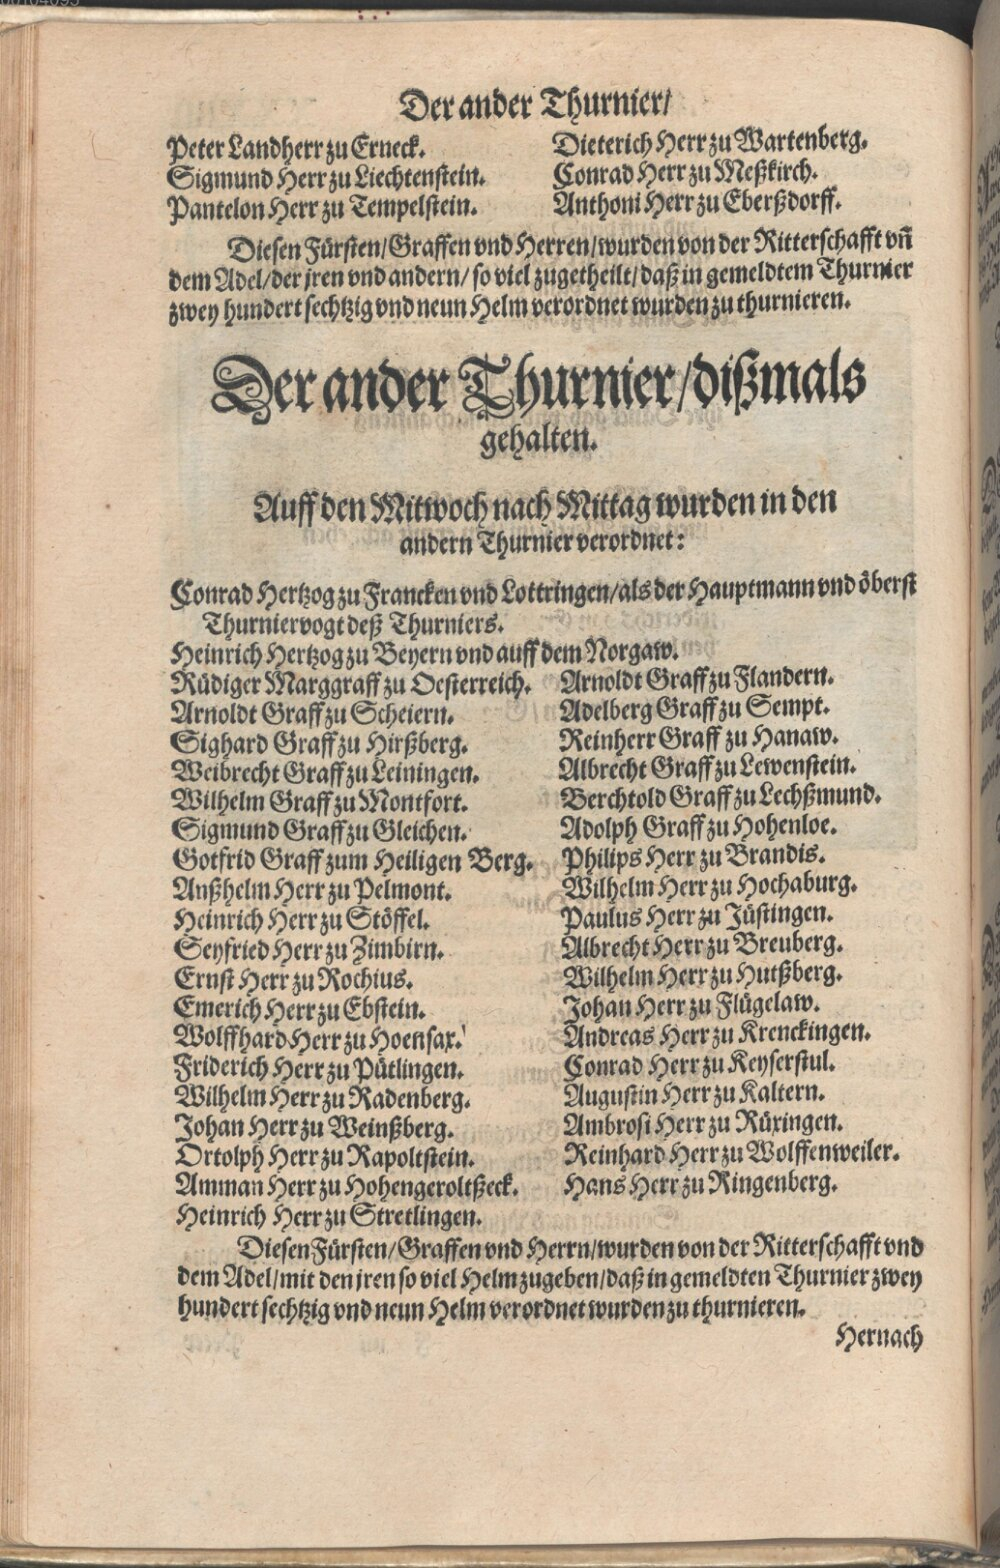 Der ander Thurnier/
Peter Landherr zu Erneck.
Sigmund Herr zu Liechtenstein.
Pantelon Herr zu Tempelstein.
Dieterich Herr zu Wartenberg.
Conrad Herr zu Meßkirch.
Anthoni Herr zu Eberßdorff.
Diesen Fürsten/Graffen vnd Herren/wurden von der Ritterschafft vn̄
dem Adel/der jren vnd andern/so viel zugetheilt/daß in gemeldtem Thurnier
zwey hundert sechtzig vnd neun Helm verordnet wurden zu thurnieren.
Der ander Thurnier/dißmals
gehalten.
Auff den Mitwoch nach Mittag wurden in den
andern Thurnier verordnet:
Conrad Hertzog zu Francken vnd Lottringen/als der Hauptmann vnd öberst
Thurniervogt deß Thurniers.
Heinrich Hertzog zu Beyern vnd auff dem Norgaw.
Rüdiger Marggraff zu Oesterreich.
Arnoldt Graff zu Scheiern.
Sighard Graff zu Hirßberg.
Weibrecht Graff zu Leiningen.
Wilhelm Graff zu Montfort.
Sigmund Graff zu Gleichen.
Gotfrid Graff zum Heiligen Berg.
Anßhelm Herr zu Pelmont.
Heinrich Herr zu Stöffel.
Seyfried Herr zu Zimbirn.
Ernst Herr zu Rochius.
Emerich Herr zu Ebstein.
Wolffhard Herr zu Hoensax.
Friderich Herr zu Pütlingen.
Wilhelm Herr zu Radenberg.
Johan Herr zu Weinßberg.
Ortolph Herr zu Rapoltstein.
Amman Herr zu Hohengeroltßeck.
Heinrich Herr zu Stretlingen.
Arnoldt Graff zu Flandern.
Adelberg Graff zu Sempt.
Reinherr Graff zu Hanaw.
Albrecht Graff zu Lewenstein.
Berchtold Graff zu Lechßmund.
Adolph Graff zu Hohenloe.
Philips Herr zu Brandis.
Wilhelm Herr zu Hochaburg.
Paulus Herr zu Jüstingen.
Albrecht Herr zu Breuberg.
Wilhelm Herr zu Hutßberg.
Johan Herr zu Flügelaw.
Andreas Herr zu Krenckingen.
Conrad Herr zu Keyserstul.
Augustin Herr zu Kaltern.
Ambrosi Herr zu Rüxingen.
Reinhard Herr zu Wolffenweiler.
Hans Herr zu Ringenberg.
Diesen Fürsten/Graffen vnd Herrn/wurden von der Ritterschafft vnd
dem Adel/mit den jren so viel Helm zugeben/daß in gemeldten Thurnier zwey
hundert sechtzig vnd neun Helm verordnet wurden zu thurnieren.
Hernach